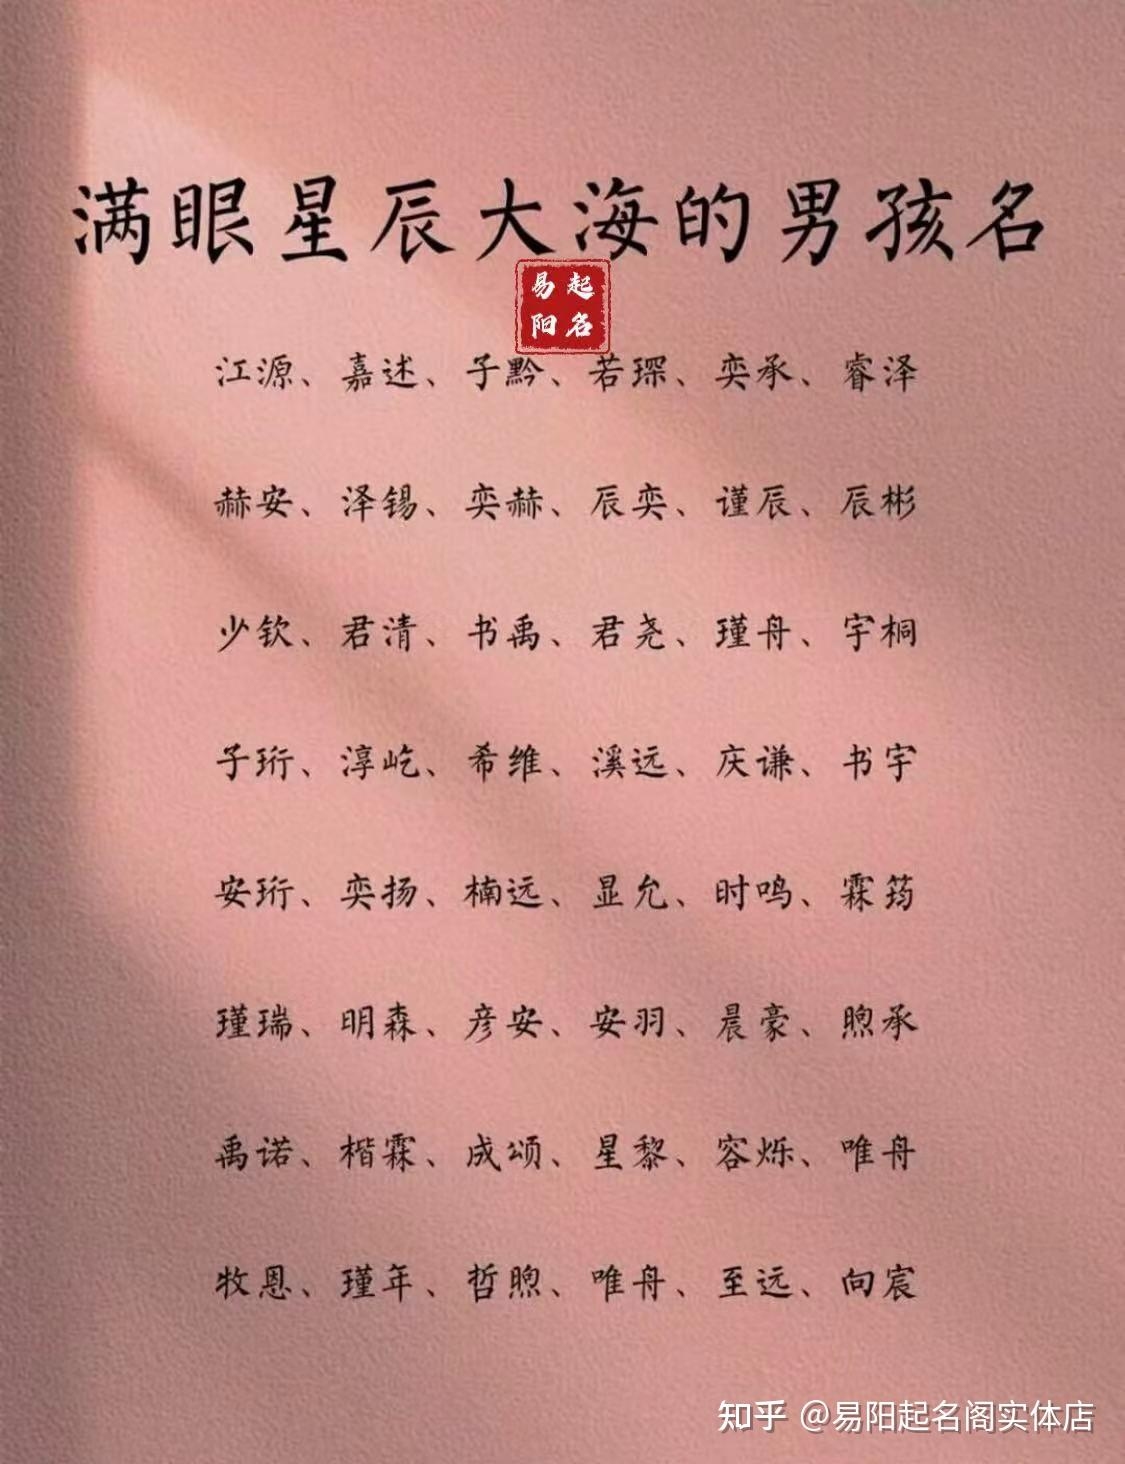 满眼星辰大海的男孩名
易起
阳名
江源、嘉述、子黔、若琛、奕承、睿泽
赫安、泽锡、奕赫、辰奕、谨辰、辰彬
少钦、君清、书禹、君尧、瑾舟、宇桐
子珩、淳屹、希维、溪远、庆谦、书宇
安珩、奕扬、楠远、显允、时鸣、霖筠
瑾瑞、明森、彦安、安羽、晨豪、煦承
禹诺、楷霖、成颂、星黎、容烁、唯舟
牧恩、瑾年、哲煦、唯舟、至远、向宸
知乎 @易阳起名阁实体店